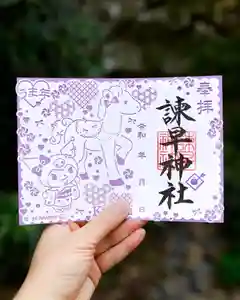 奉拝
諫早神社
令和 年 月 日